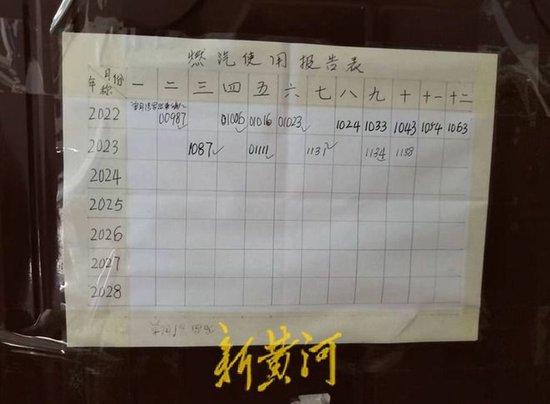 燃汽使用报告表
年 月份 一 二 三 四 五 六 七 八 九 十 十一 十二
2022 00987 01006 01016 01023 1024 1033 1043 1054 1063
2023 1087 01111 1137 1134 1158
2024
2025
2026
2027
2028
新黄河